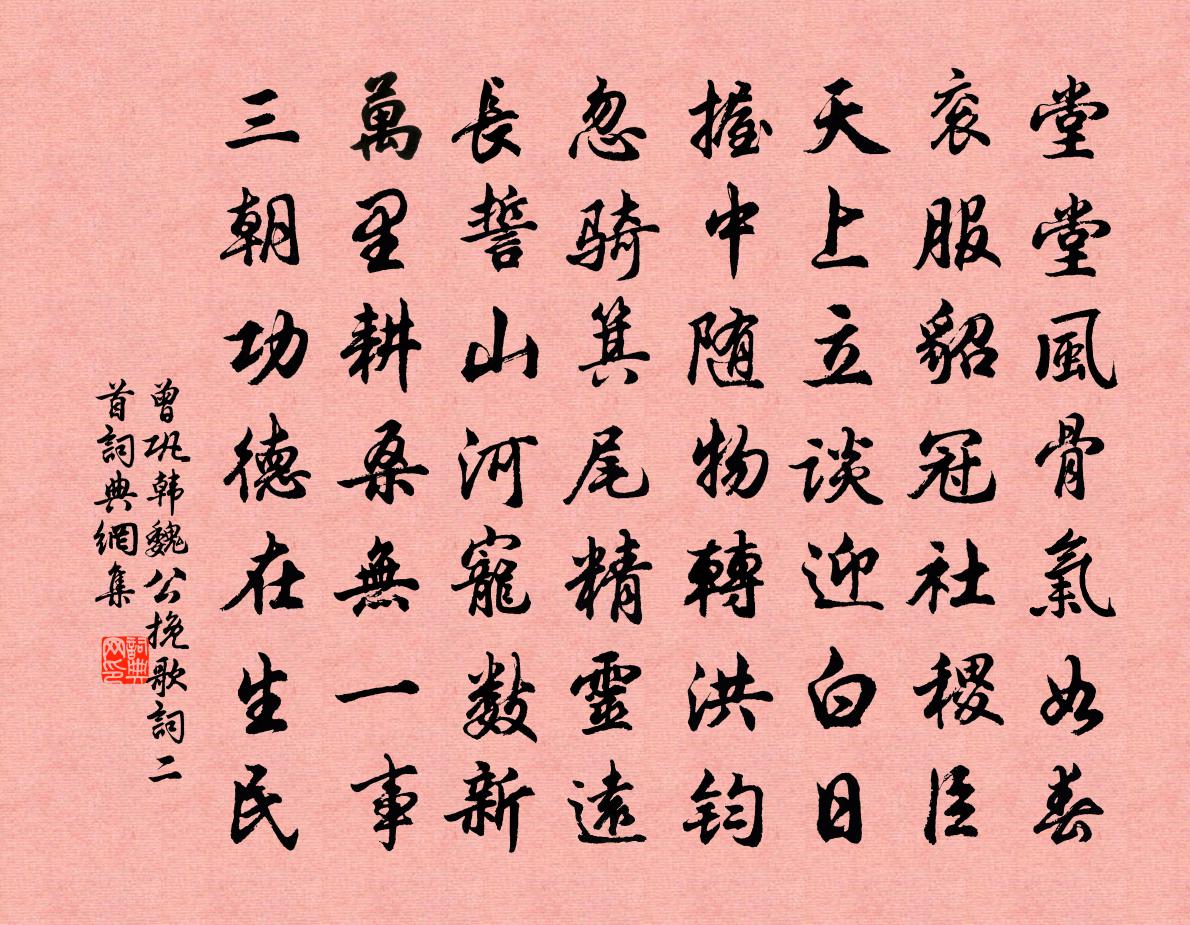 堂堂風骨氣如春
衮服貂冠社稷臣
天上立談迎白日
握中随物轉洪鈞
忽騎箕尾精靈遠
長誓山河寵數新
萬里耕桑無一事
三朝功德在生民
曾巩韩魏公挽歌詞二
首詞典網集
詞典
网印